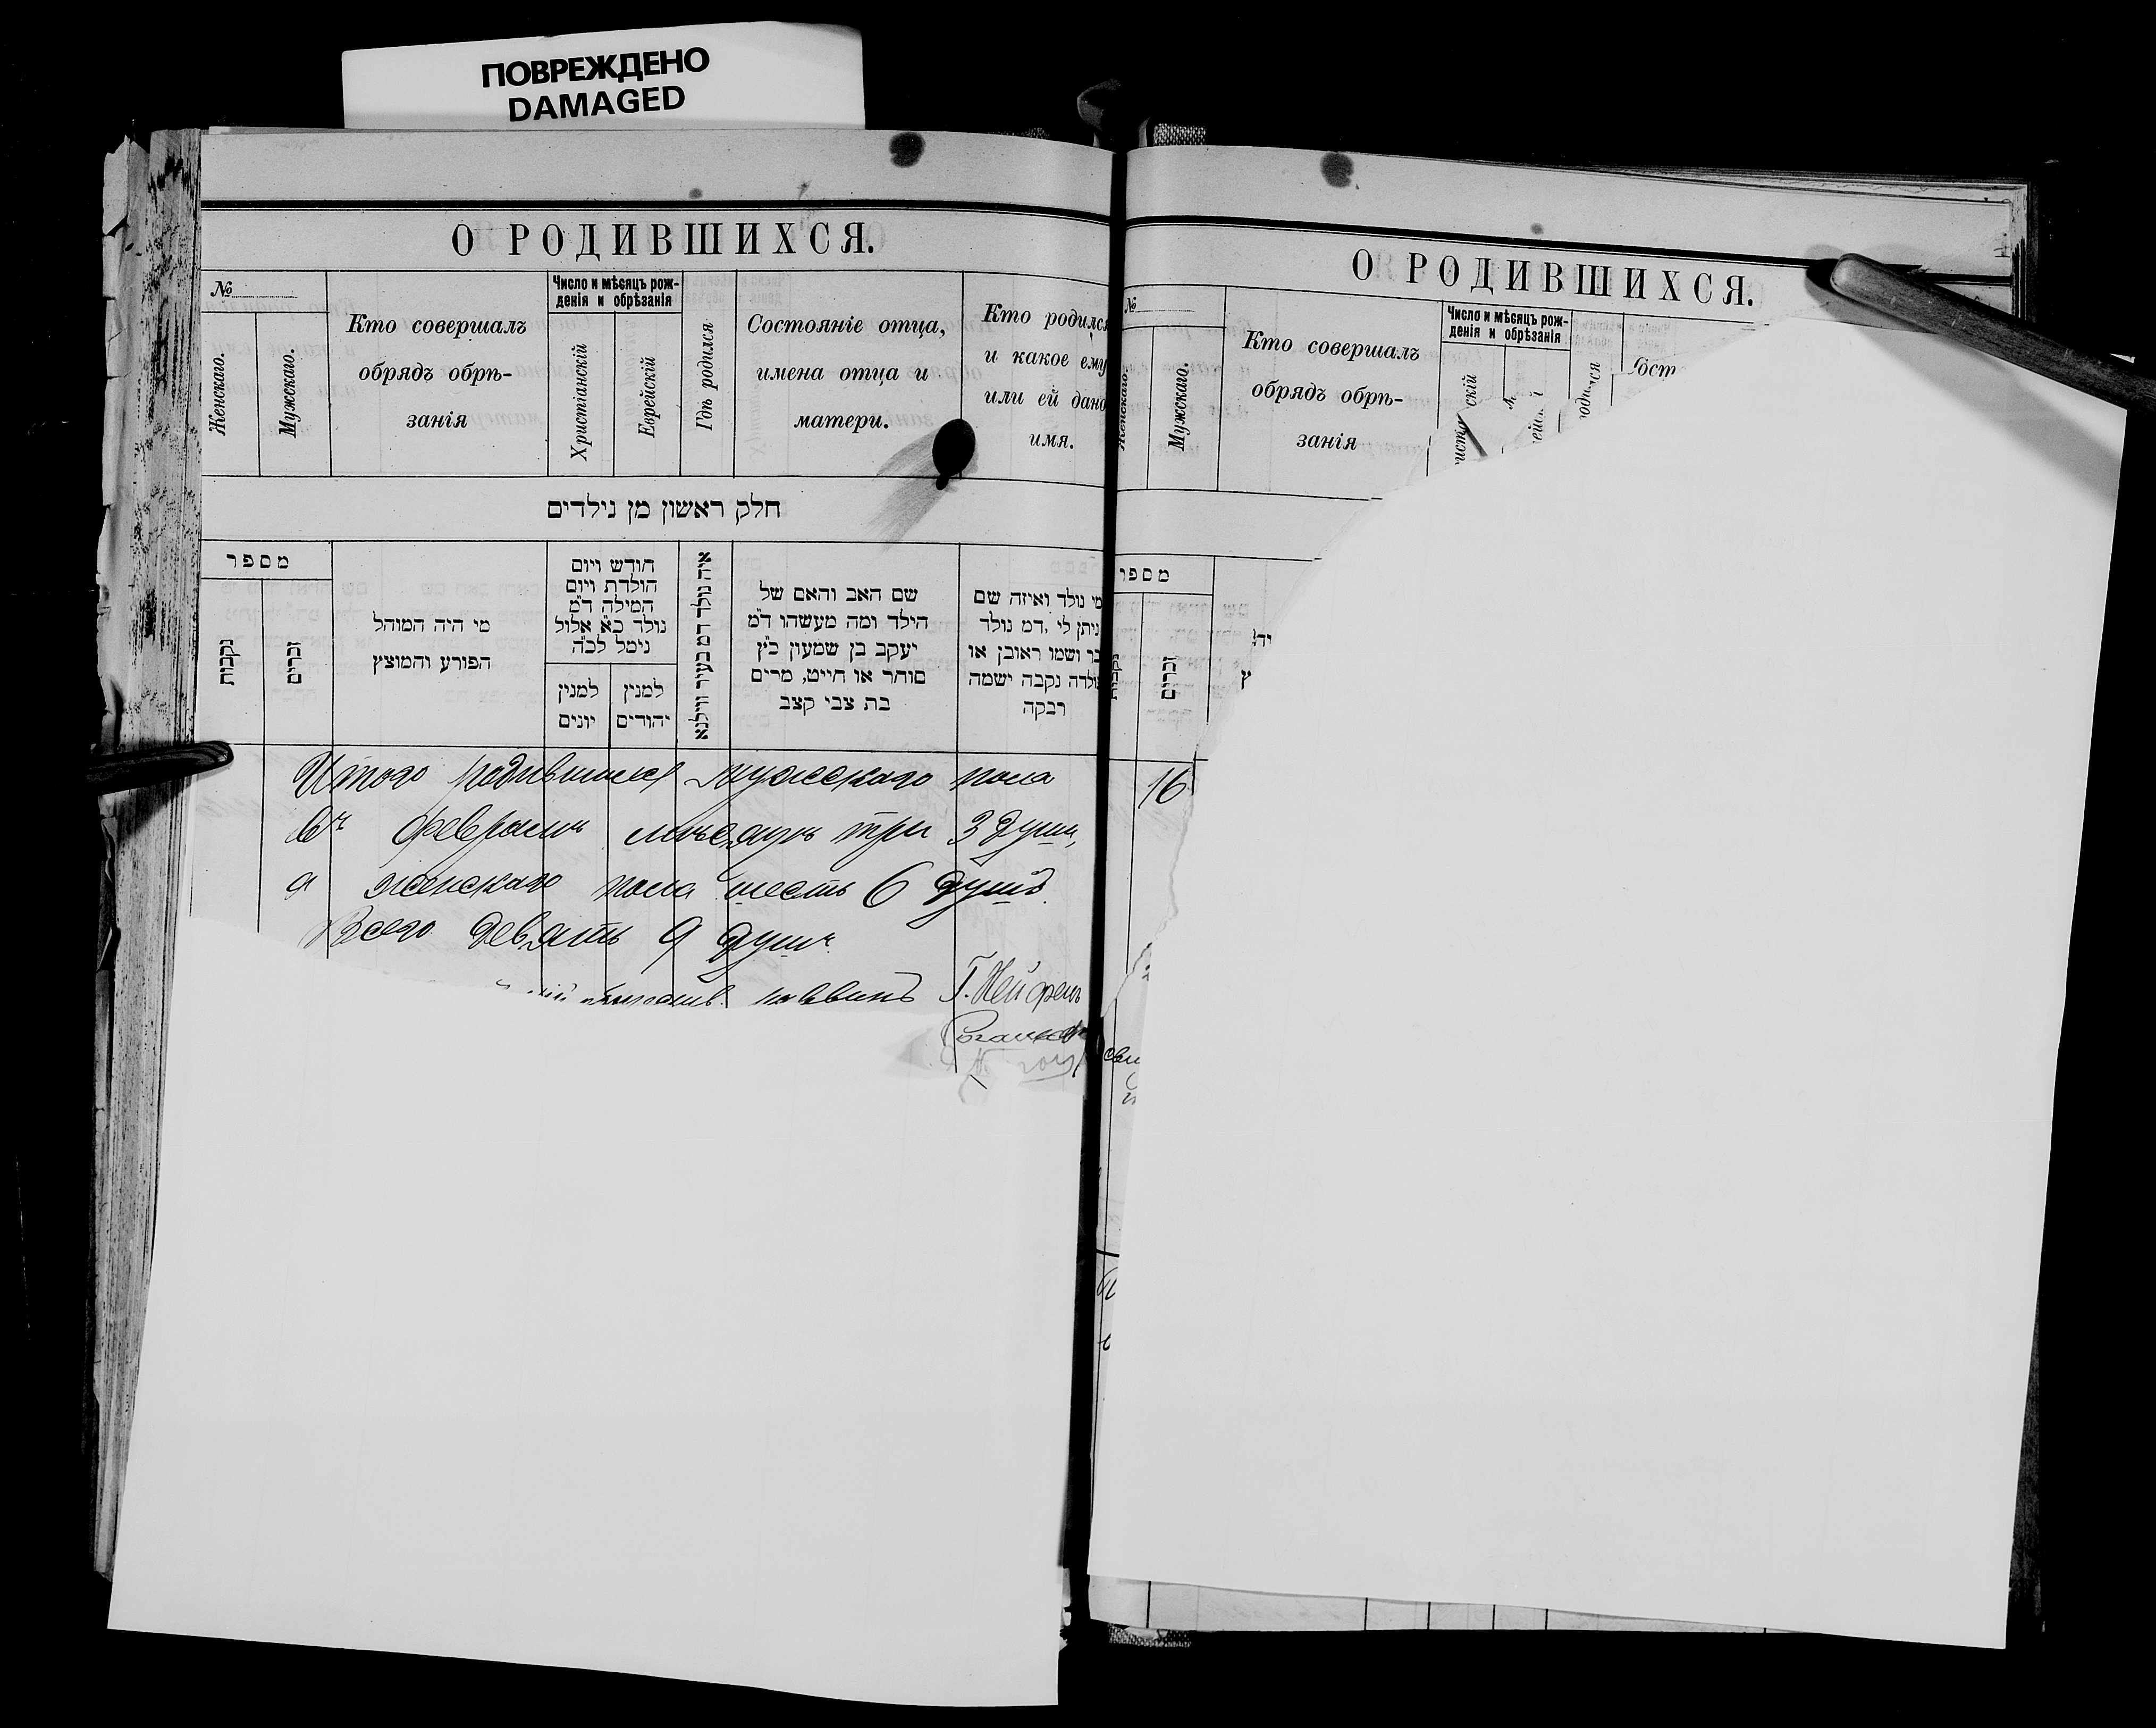 ПОВРЕЖДЕНО
DAMAGED
О РОДИВШИХСЯ.
№
Женскаго.
Мужскаго.
Кто совершалъ
обрядъ обрѣ-
занія
Число и мѣсяцъ рож-
денія и обрѣзанія
Христіанскій
Еврейскій
Гдѣ родился
Состояніе отца,
имена отца и
матери.
Кто родился
и какое ему
или ей дано
имя.
חלק ראשון מן נילדים
מספר
נקבות
זכרים
מי היה המוהל
הפורע והמוצץ
חודש ויום
הולדת ויום
המילה ד״מ
נולד כ״א אלול
נימל לכ״ה
למנין
יונים
למנין
יהודים
איה נולד דמ בעיר ווילנא
שם האב והאם של
הילד ומה מעשהו ד״מ
יעקב בן שמעון כ״ץ
סוחר או חייט, מרים
בת צבי קצב
מי נולד ואיזה שם
ניתן לי, דמ נולד
בר ושמו ראובן או
נולדה נקבה ישמה
רבקה
Итого родившихся мужескаго пола
въ февралѣ мѣсяцѣ три 3 души,
а женскаго пола шесть 6 душъ.
Всего девять 9 душъ.
раввинъ Г. Нейфельд
О РОДИВШИХСЯ.
№
Женскаго.
Мужскаго.
Кто совершалъ
обрядъ обрѣ-
занія
Число и мѣсяцъ рож-
денія и обрѣзанія
מספר
זכרים
16